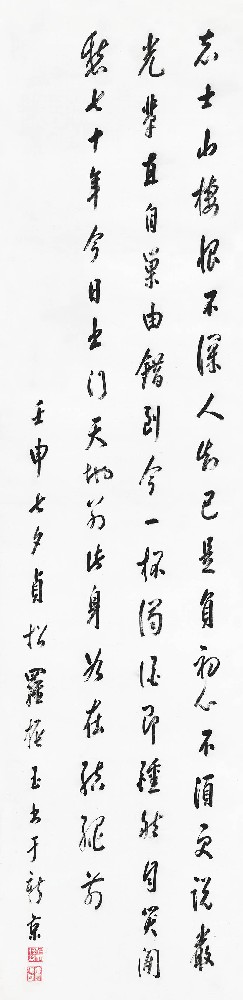 志士山棲恨不深人知已是負初心不須更說嚴
光輩直自巢由錯到今一杯濁酒即醺然自笑閒
愁七十年今日出門天地別此身如在結繩前
壬申七夕貞松羅振玉書于新京